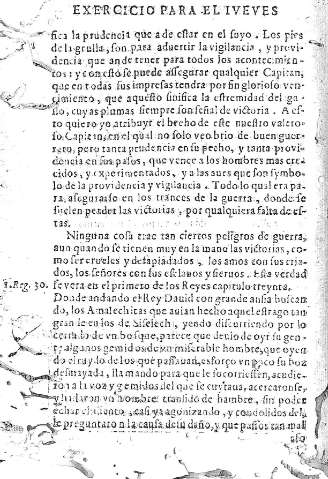 EXERCICIO PARA EL IVEVES
fica la prudencia que a de estar en el suyo. Los pies
de la grulla, son para aduertir la vigilancia, y proui-
dencia que an de tener para todos los acontecimien-
tos: y con esto se puede assegurar qualquier Capitan,
que en todas sus impresas tendra por fin glorioso ven-
cimiento, que aquesto sinifica la estremidad del ga-
llo, cuyas plumas siempre son señal de victoria. A es-
to quiero yo atribuyr el hecho de este nuestro valero-
so Capitan, en el qual no solo veo brio de buen guer-
rero, pero tanta prudencia en su pecho, y tanta proui-
dencia en sus passos, que vence a los hombres mas cre-
cidos, y experimentados, y a las aues que son symbo-
lo de la prouidencia y vigilancia. Todo lo qual era pa-
ra, assegurarse en los trances de la guerra, donde se
suelen perder las victorias, por qualquiera falta de es-
tas.
Ninguna cosa trae tan ciertos peligros de guerra,
aun quando se tienen muy en la mano las victorias, co-
mo ser crueles y desapiadados, los amos con sus cria-
dos, los señores con sus esclauos y sieruos. Esta verdad
1. Reg. 30. se vera en el primero de los Reyes capitulo treynta.
Donde andando el Rey Dauid con grande ansia buscan-
do, los Amalechitas que auian hecho aquel estrago tan
gran le en los de Siselech, yendo discurriendo por lo
cerrado de vn bosque, parece que deuio de oyr su gen-
te, algunos gemidos de vn miserable hombre, que oyen
do el ruydo de los que passauan, esforço vn poco su boz
desmayada, llamando para que le socorriessen, acudie-
ron a la voz y gemidos del que se cuytaua, acercaronse,
y hallaron vn hombre transido de hambre, sin poder
echar el aliento, casi ya agonizando, y condolidos del,
le preguntaron la causa de su daño, y que passos tan mal